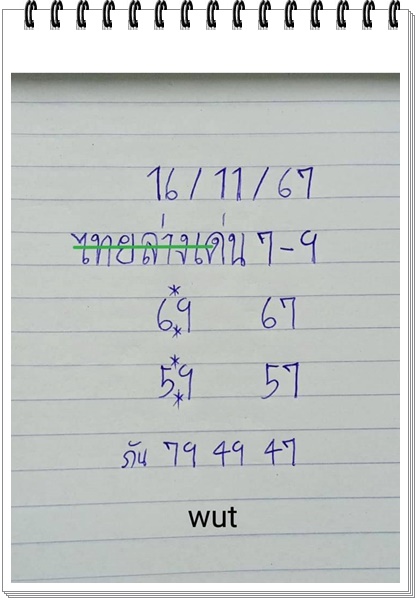 16/11/67
ไทยล่างเด่น 7-9
6*9* 67
5*9* 57
กัน 79 49 47
wut